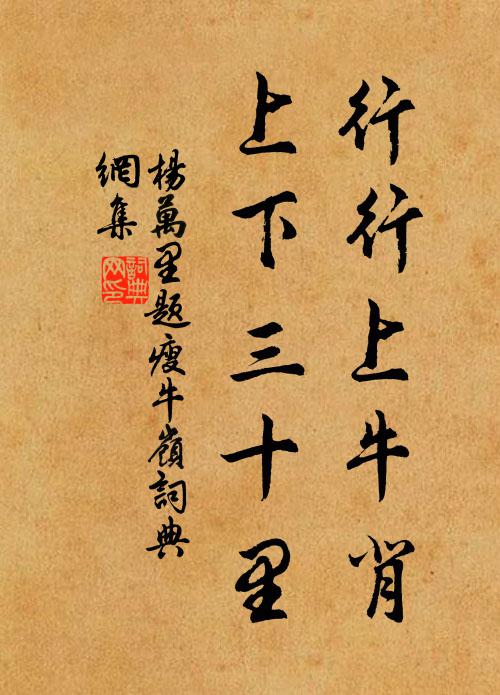 行行上牛背
上下三十里
楊萬里題瘦牛嶺詞典
網集
詞典網印